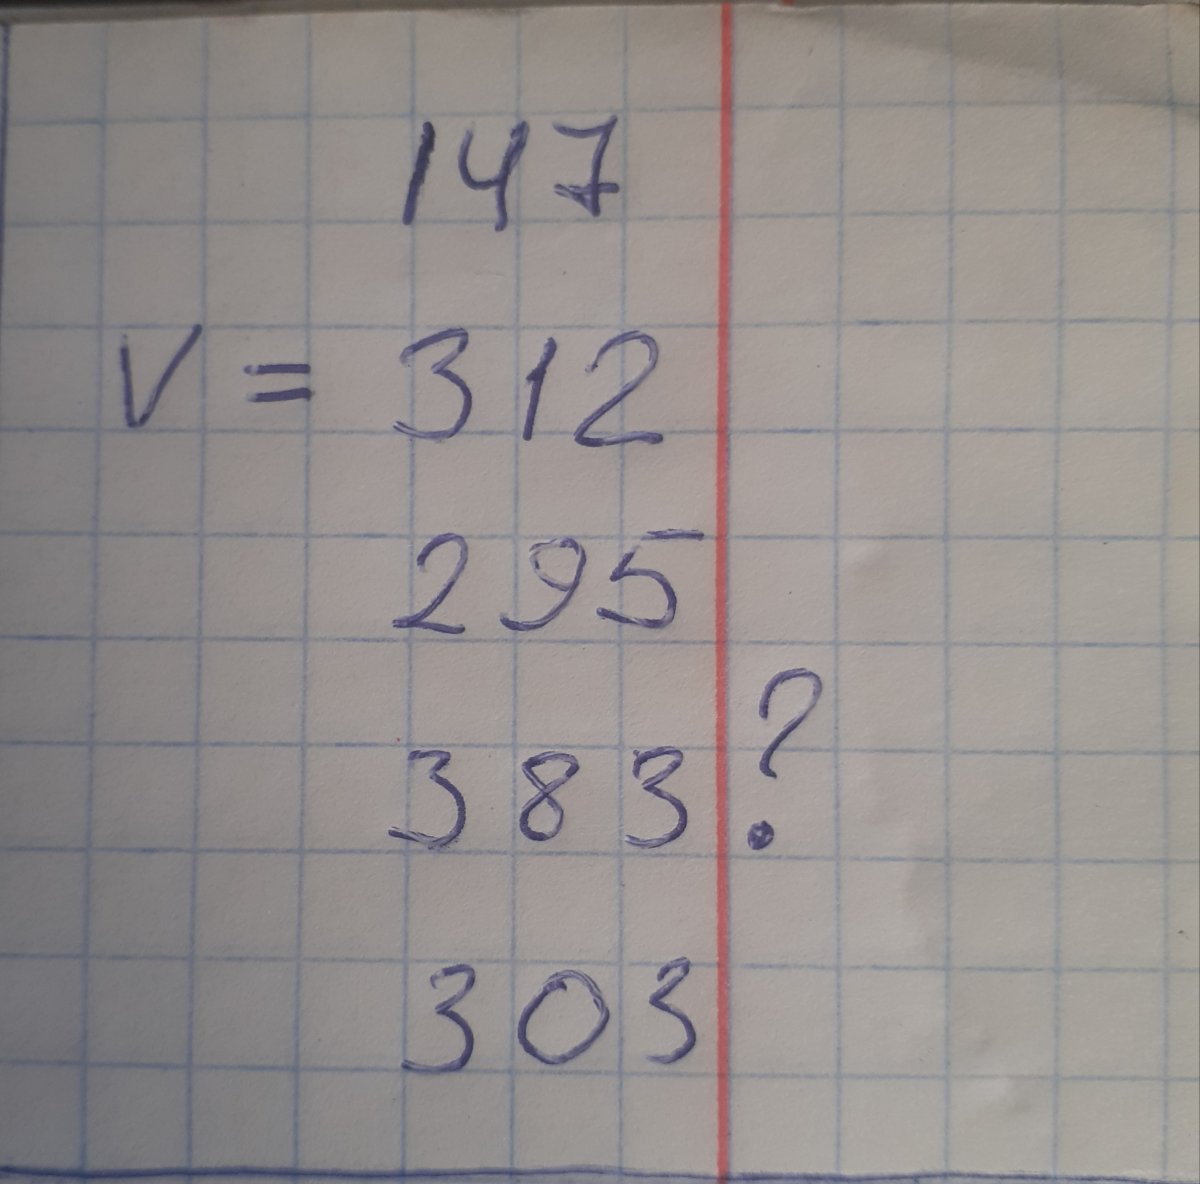 147
V = 312
295
383?
303